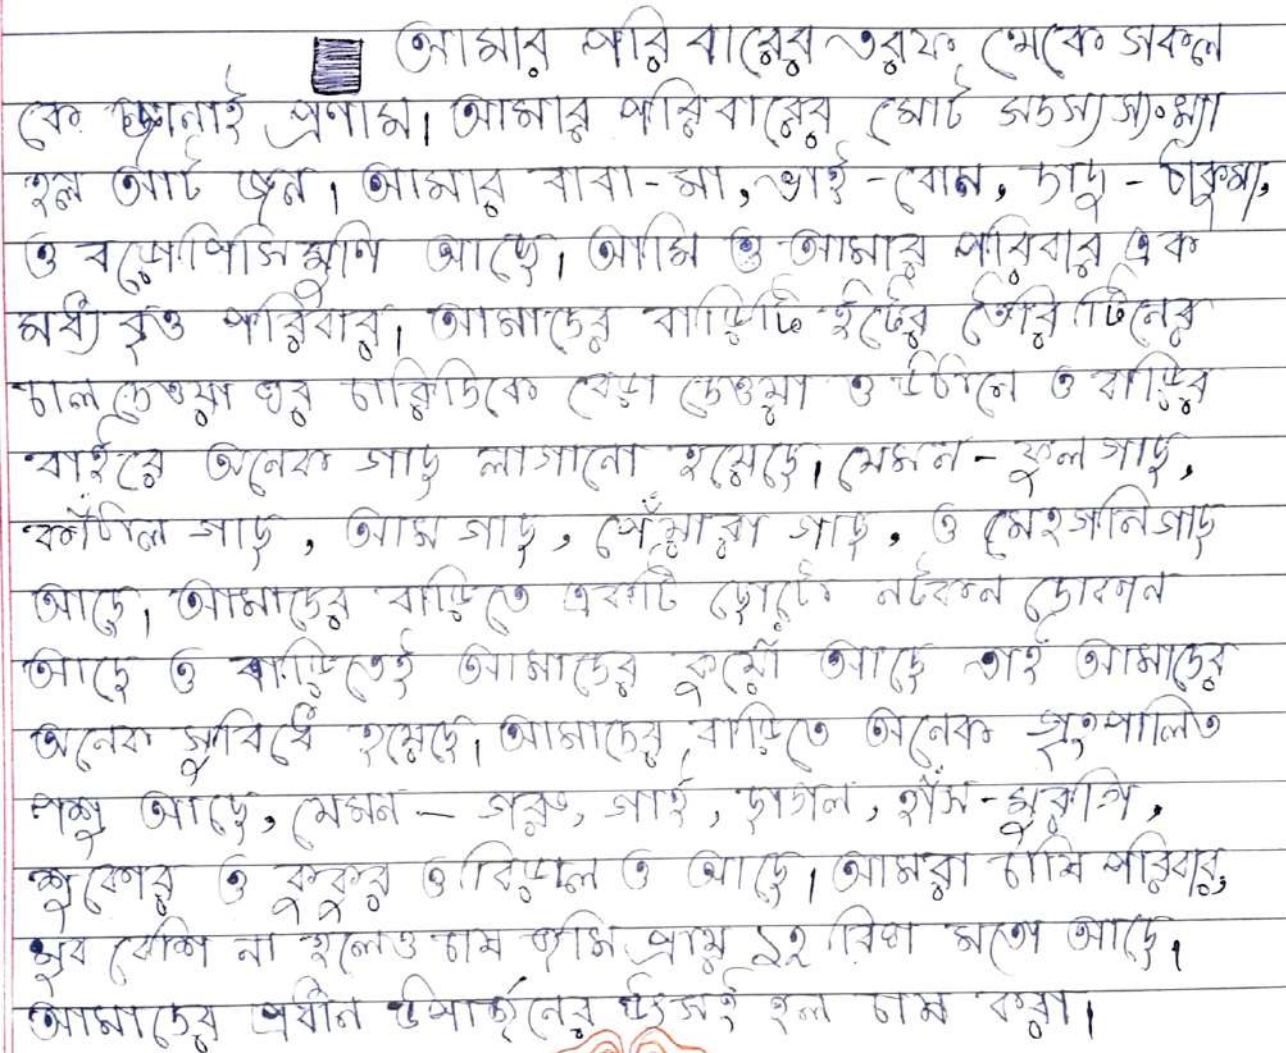 আমার পরিবারের তরফ থেকে সকল
কে জানাই প্রণাম। আমার পরিবারের মোট সদস্যসংখ্যা
হল আট জন। আমার বাবা-মা, ভাই-বোন, দাদু-ঠাকুমা,
ও বড়োপিসিমুণি আছে। আমি ও আমার পরিবার এক
মধ্যবৃত্ত পরিবার। আমাদের বাড়িটি ইটের তৈরি টিনের
চাল দেওয়া ঘর চারিদিকে বেড়া দেওয়া ও উঠানে ও বাড়ির
বাইরে অনেক গাছ লাগানো হয়েছে। যেমন - ফুল গাছ,
কাঁঠাল গাছ, আম গাছ, পেঁয়ারা গাছ, ও মেহগনিগাছ
আছে। আমাদের বাড়িতে একটি ছোটো দোকান
আছে ও বাড়িতেই আমাদের কুয়ো আছে তাই আমাদের
অনেক সুবিধে হয়েছে। আমাদের বাড়িতে অনেক গৃহপালিত
পশু আছে, যেমন - গরু, গাই, ছাগল, হাঁস-মুরগি,
শুকোর ও কুকুর ও বিড়াল ও আছে। আমরা চাষি পরিবার,
খুব বেশি না হলেও চাষ জমি প্রায় ১২ বিঘা মতো আছে।
আমাদের প্রধান উপার্জনের উৎসই হল চাষ করা।